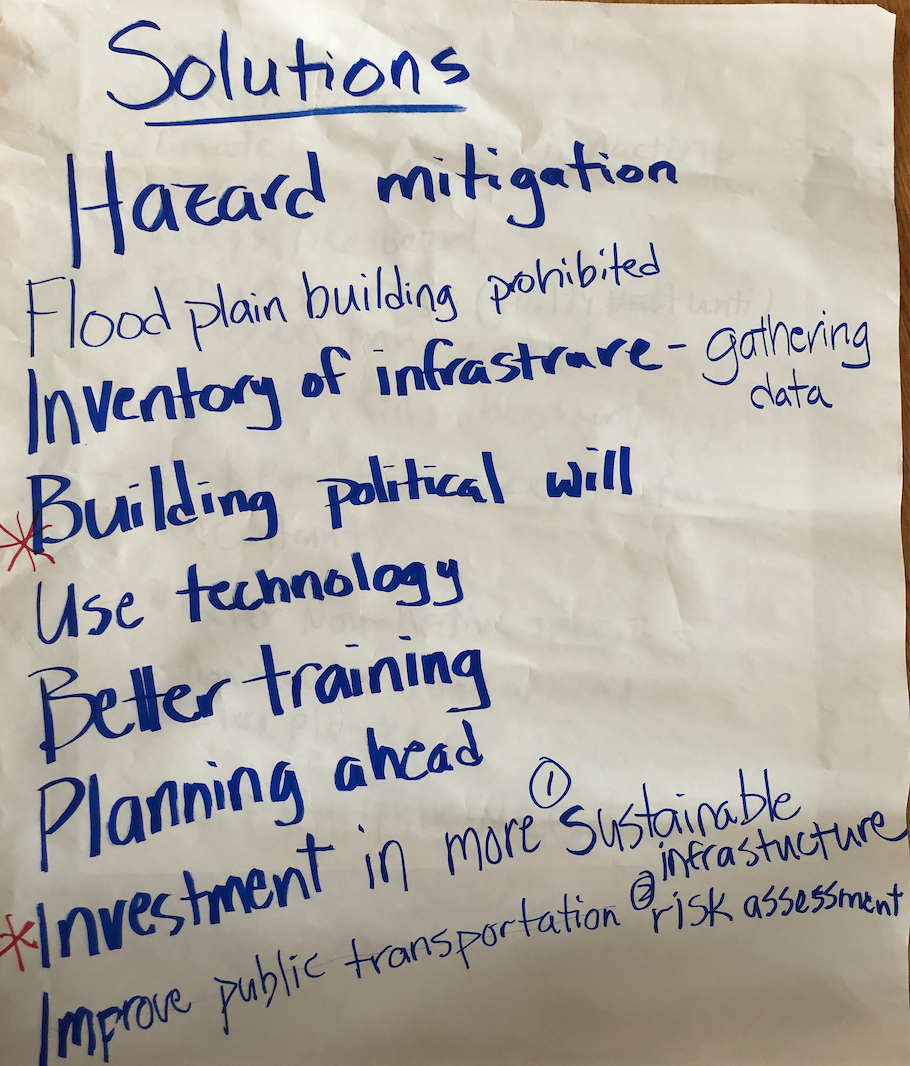 Solutions
Hazard mitigation
Flood plain building prohibited
Inventory of infrastrure - gathering
data
* Building political will
Use technology
Better training
Planning ahead
* Investment in more ① Sustainable
infrastucture
② risk assessment
Improve public transportation